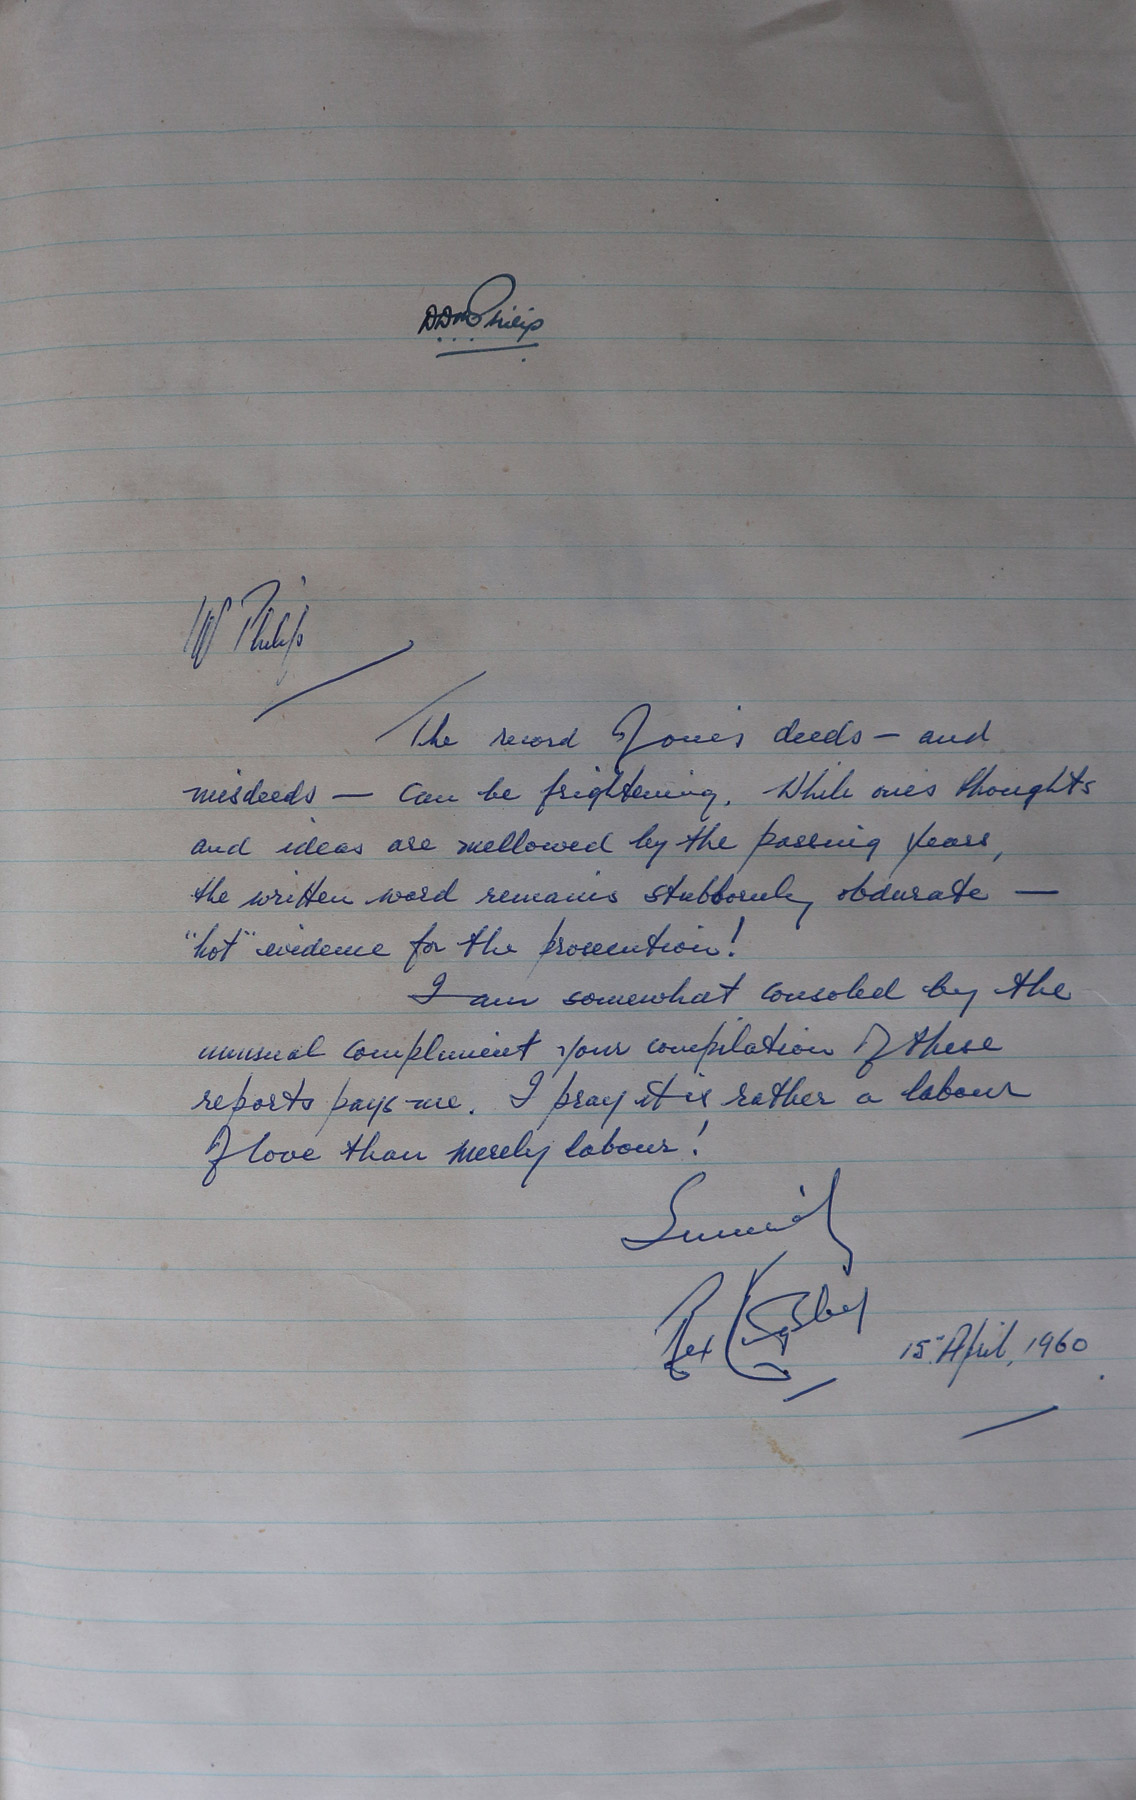 Philip
Philip
The record of one's deeds – and
misdeeds – can be frightening. While one's thoughts
and ideas are mellowed by the passing years,
the written word remains stubbornly obdurate –
"hot" evidence for the prosecution!
I am somewhat consoled by the
unusual compliment your compilation of these
reports pays me. I pray it is rather a labour
of love than merely labour!
Rex
15" April, 1960